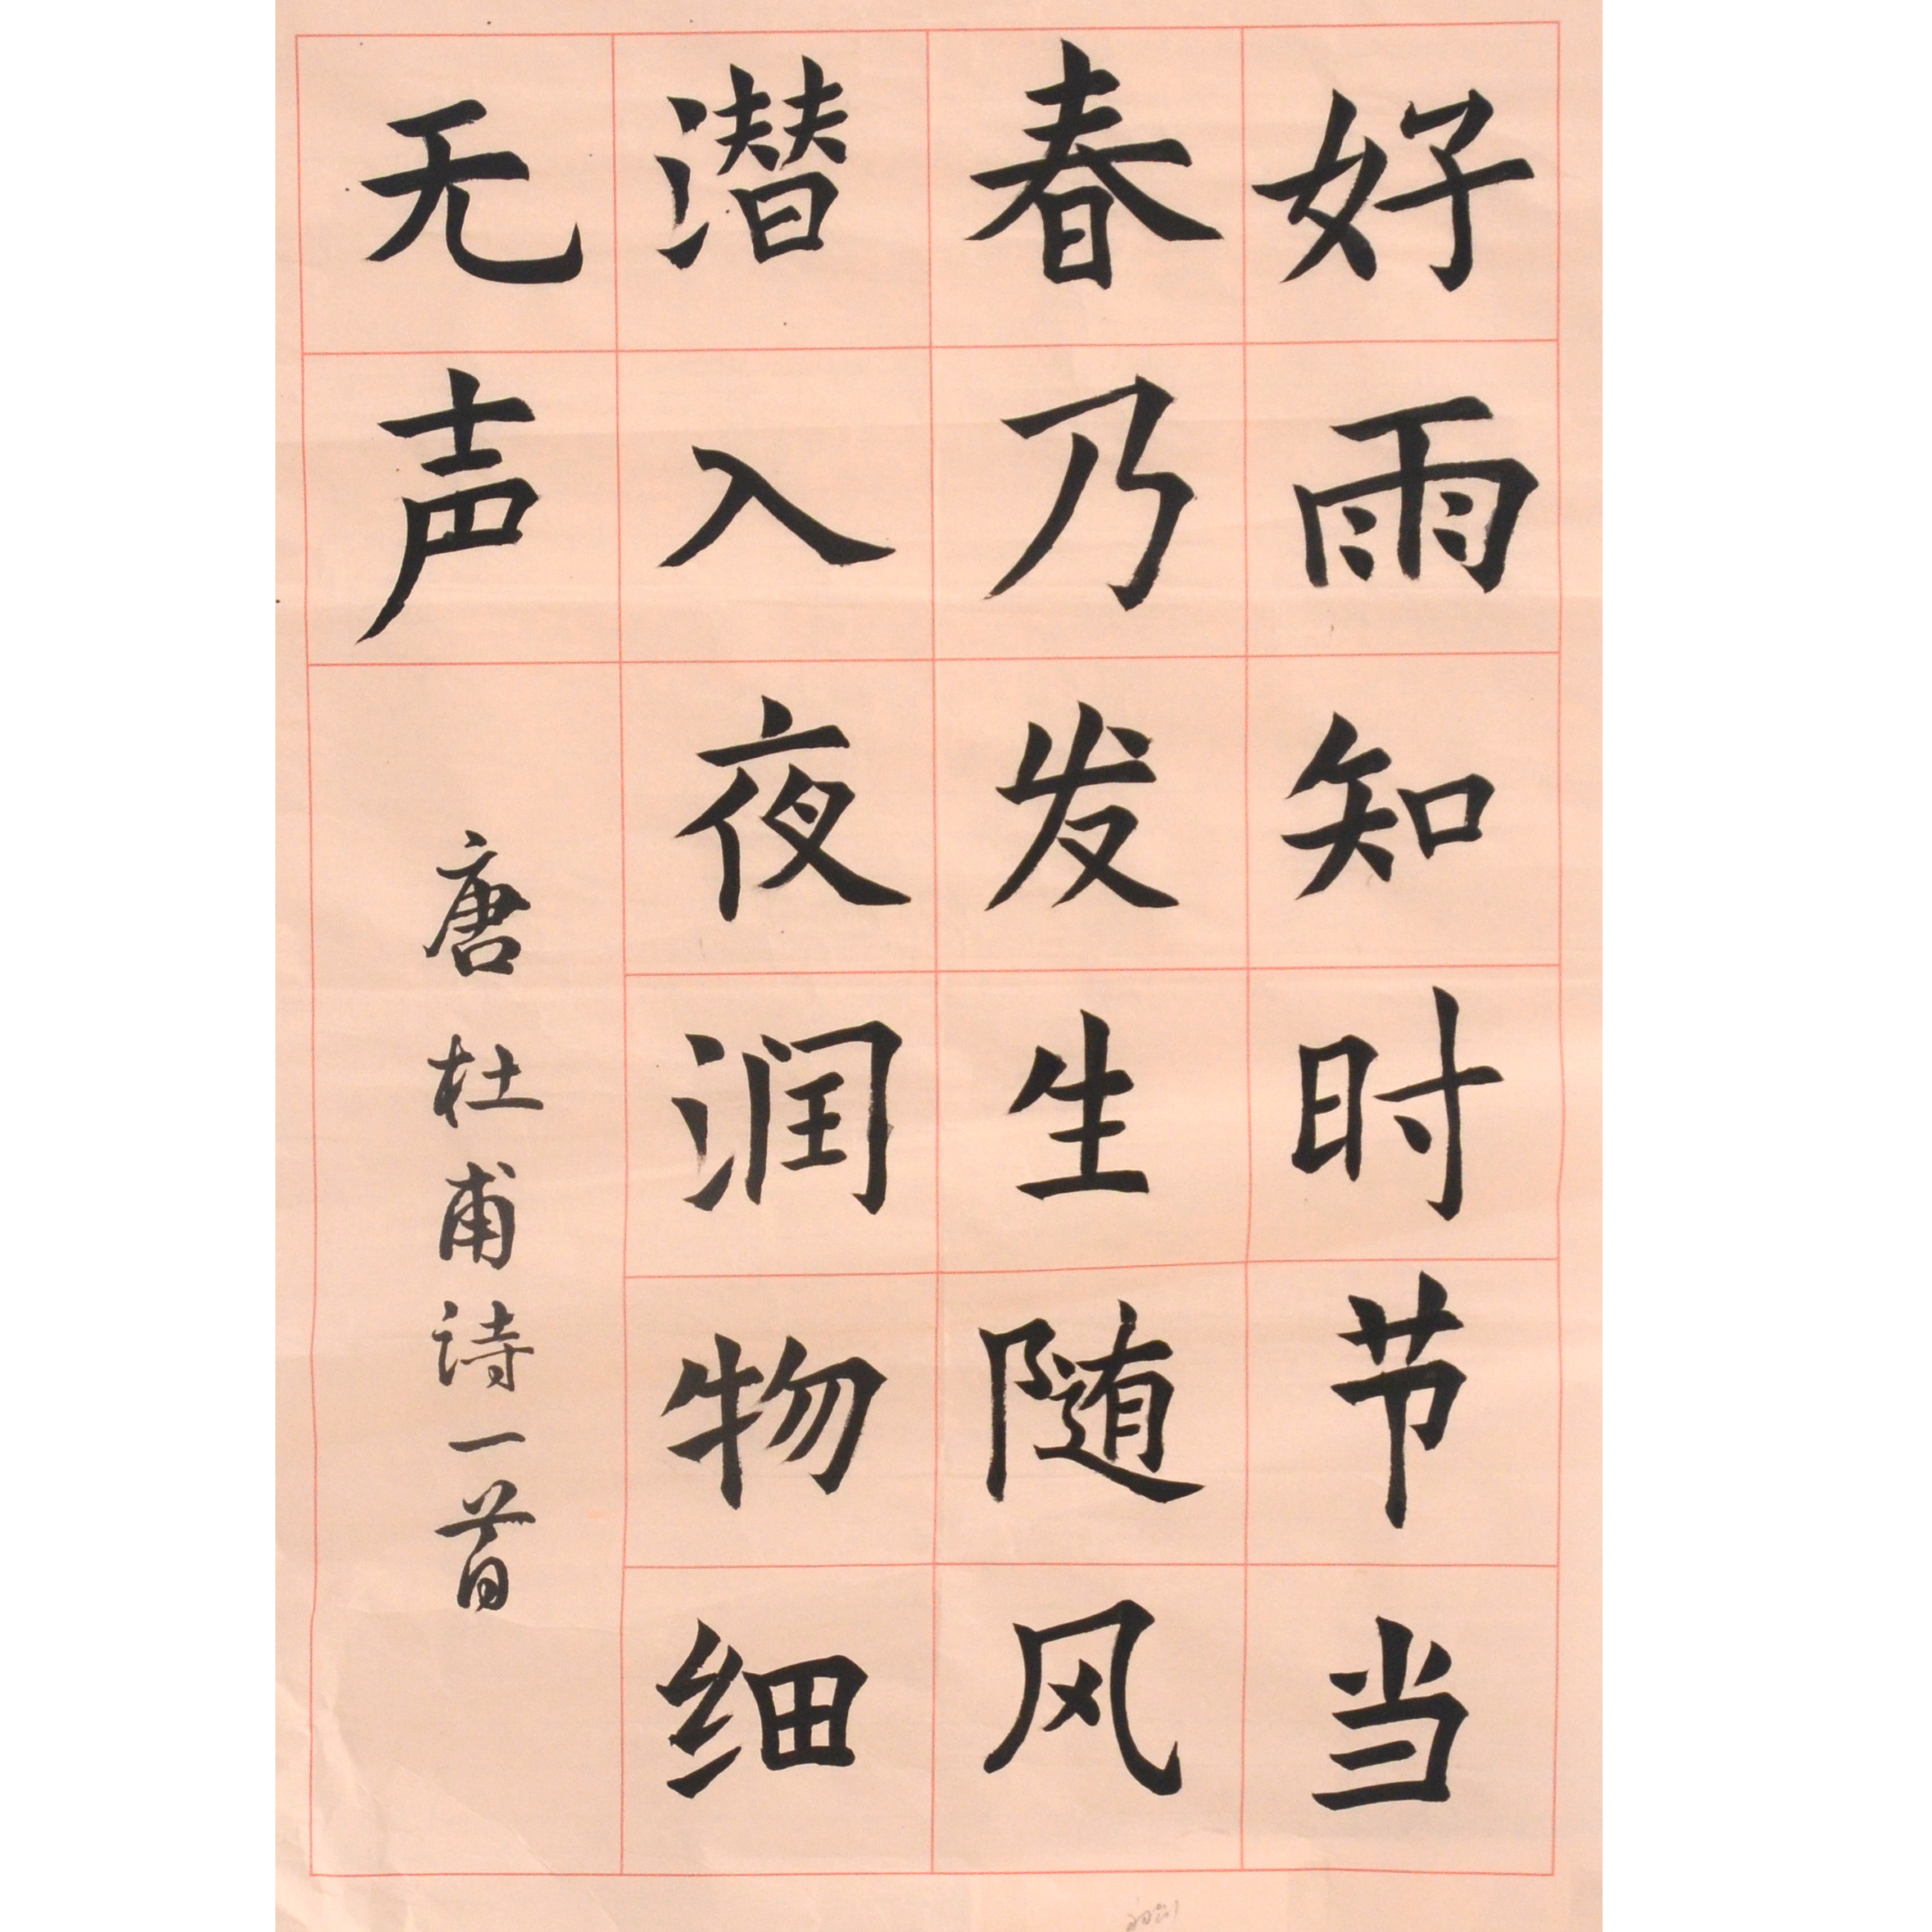 好雨知时节当
春乃发生随风
潜入夜润物细
无声
唐杜甫诗一首